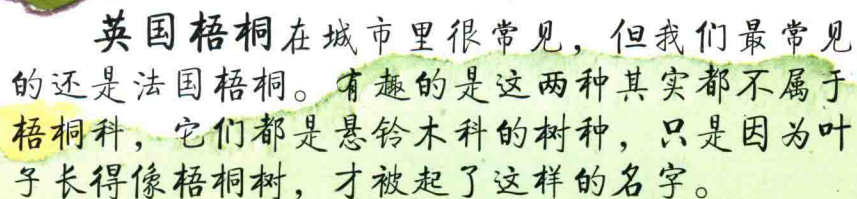 英国梧桐在城市里很常见，但我们最常见
的还是法国梧桐。有趣的是这两种其实都不属于
梧桐科，它们都是悬铃木科的树种，只是因为叶
子长得像梧桐树，才被起了这样的名字。